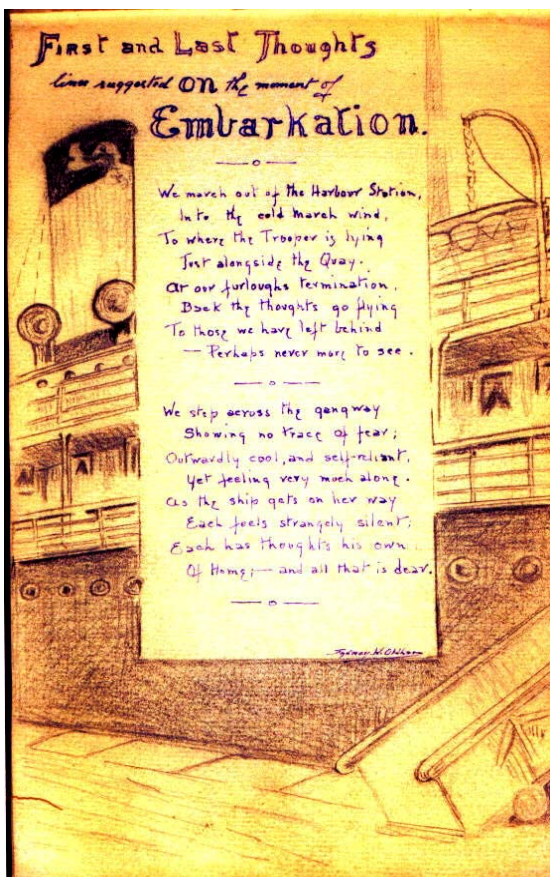 First and Last Thoughts
lines suggested on the moment of
Embarkation.
We march out of the Harbour Station,
Into the cold March wind,
To where the Trooper is lying
Just alongside the Quay.
At our furloughs termination,
Back the thoughts go flying
To those we have left behind
— Perhaps never more to see.
We step across the gangway
Showing no trace of fear;
Outwardly cool, and self-reliant,
Yet feeling very much alone.
As the ship gets on her way
Each feels strangely silent;
Each has thoughts his own
Of Home; — and all that is dear.